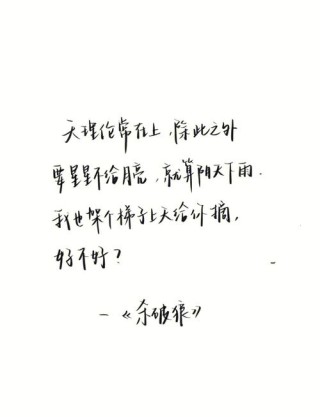 天理伦常在上,除此之外
要星星不给月亮,就算阴天下雨.
我也架个梯子上天给你摘,
好不好?
—《杀破狼》